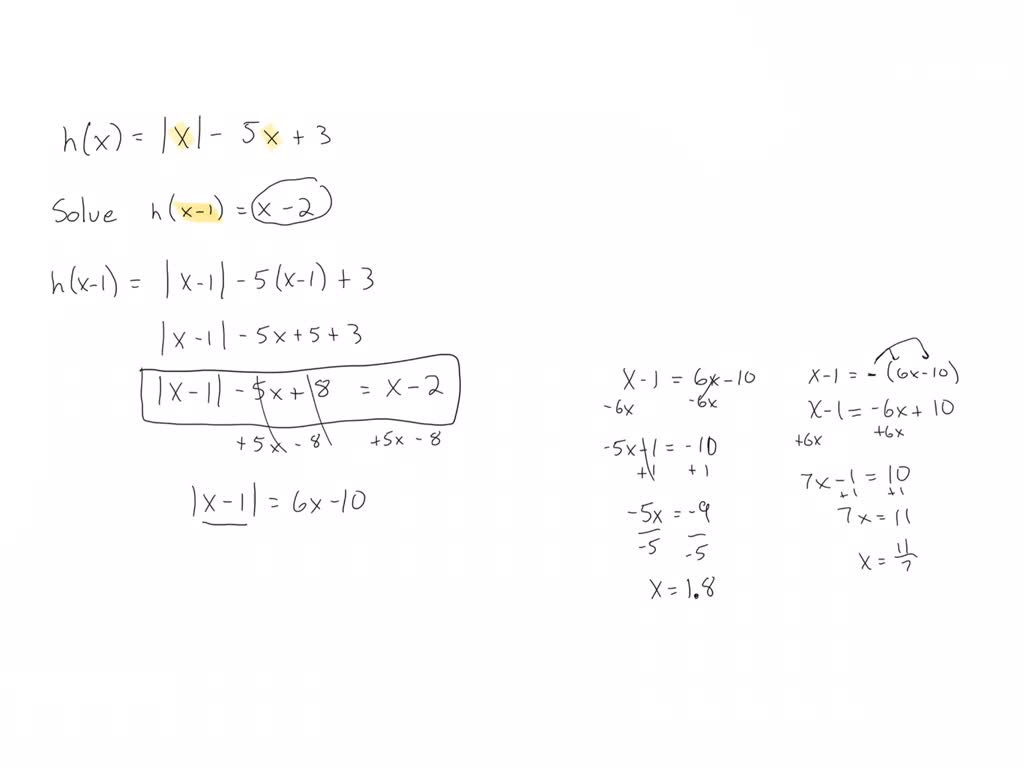 h(x) = |x| - 5x + 3
Solve h(x-1) = x - 2
h(x-1) = |x-1| - 5(x-1) + 3
|x-1| - 5x + 5 + 3
|x-1| - 5x + 8 = x - 2
+5x - 8 +5x - 8
|x-1| = 6x - 10
x-1 = 6x-10
-6x -6x
-5x-1 = -10
+1 +1
-5x = -9
-5 -5
x = 1.8
x-1 = -(6x-10)
x-1 = -6x+10
+6x +6x
7x-1 = 10
+1 +1
7x = 11
x = 11/7